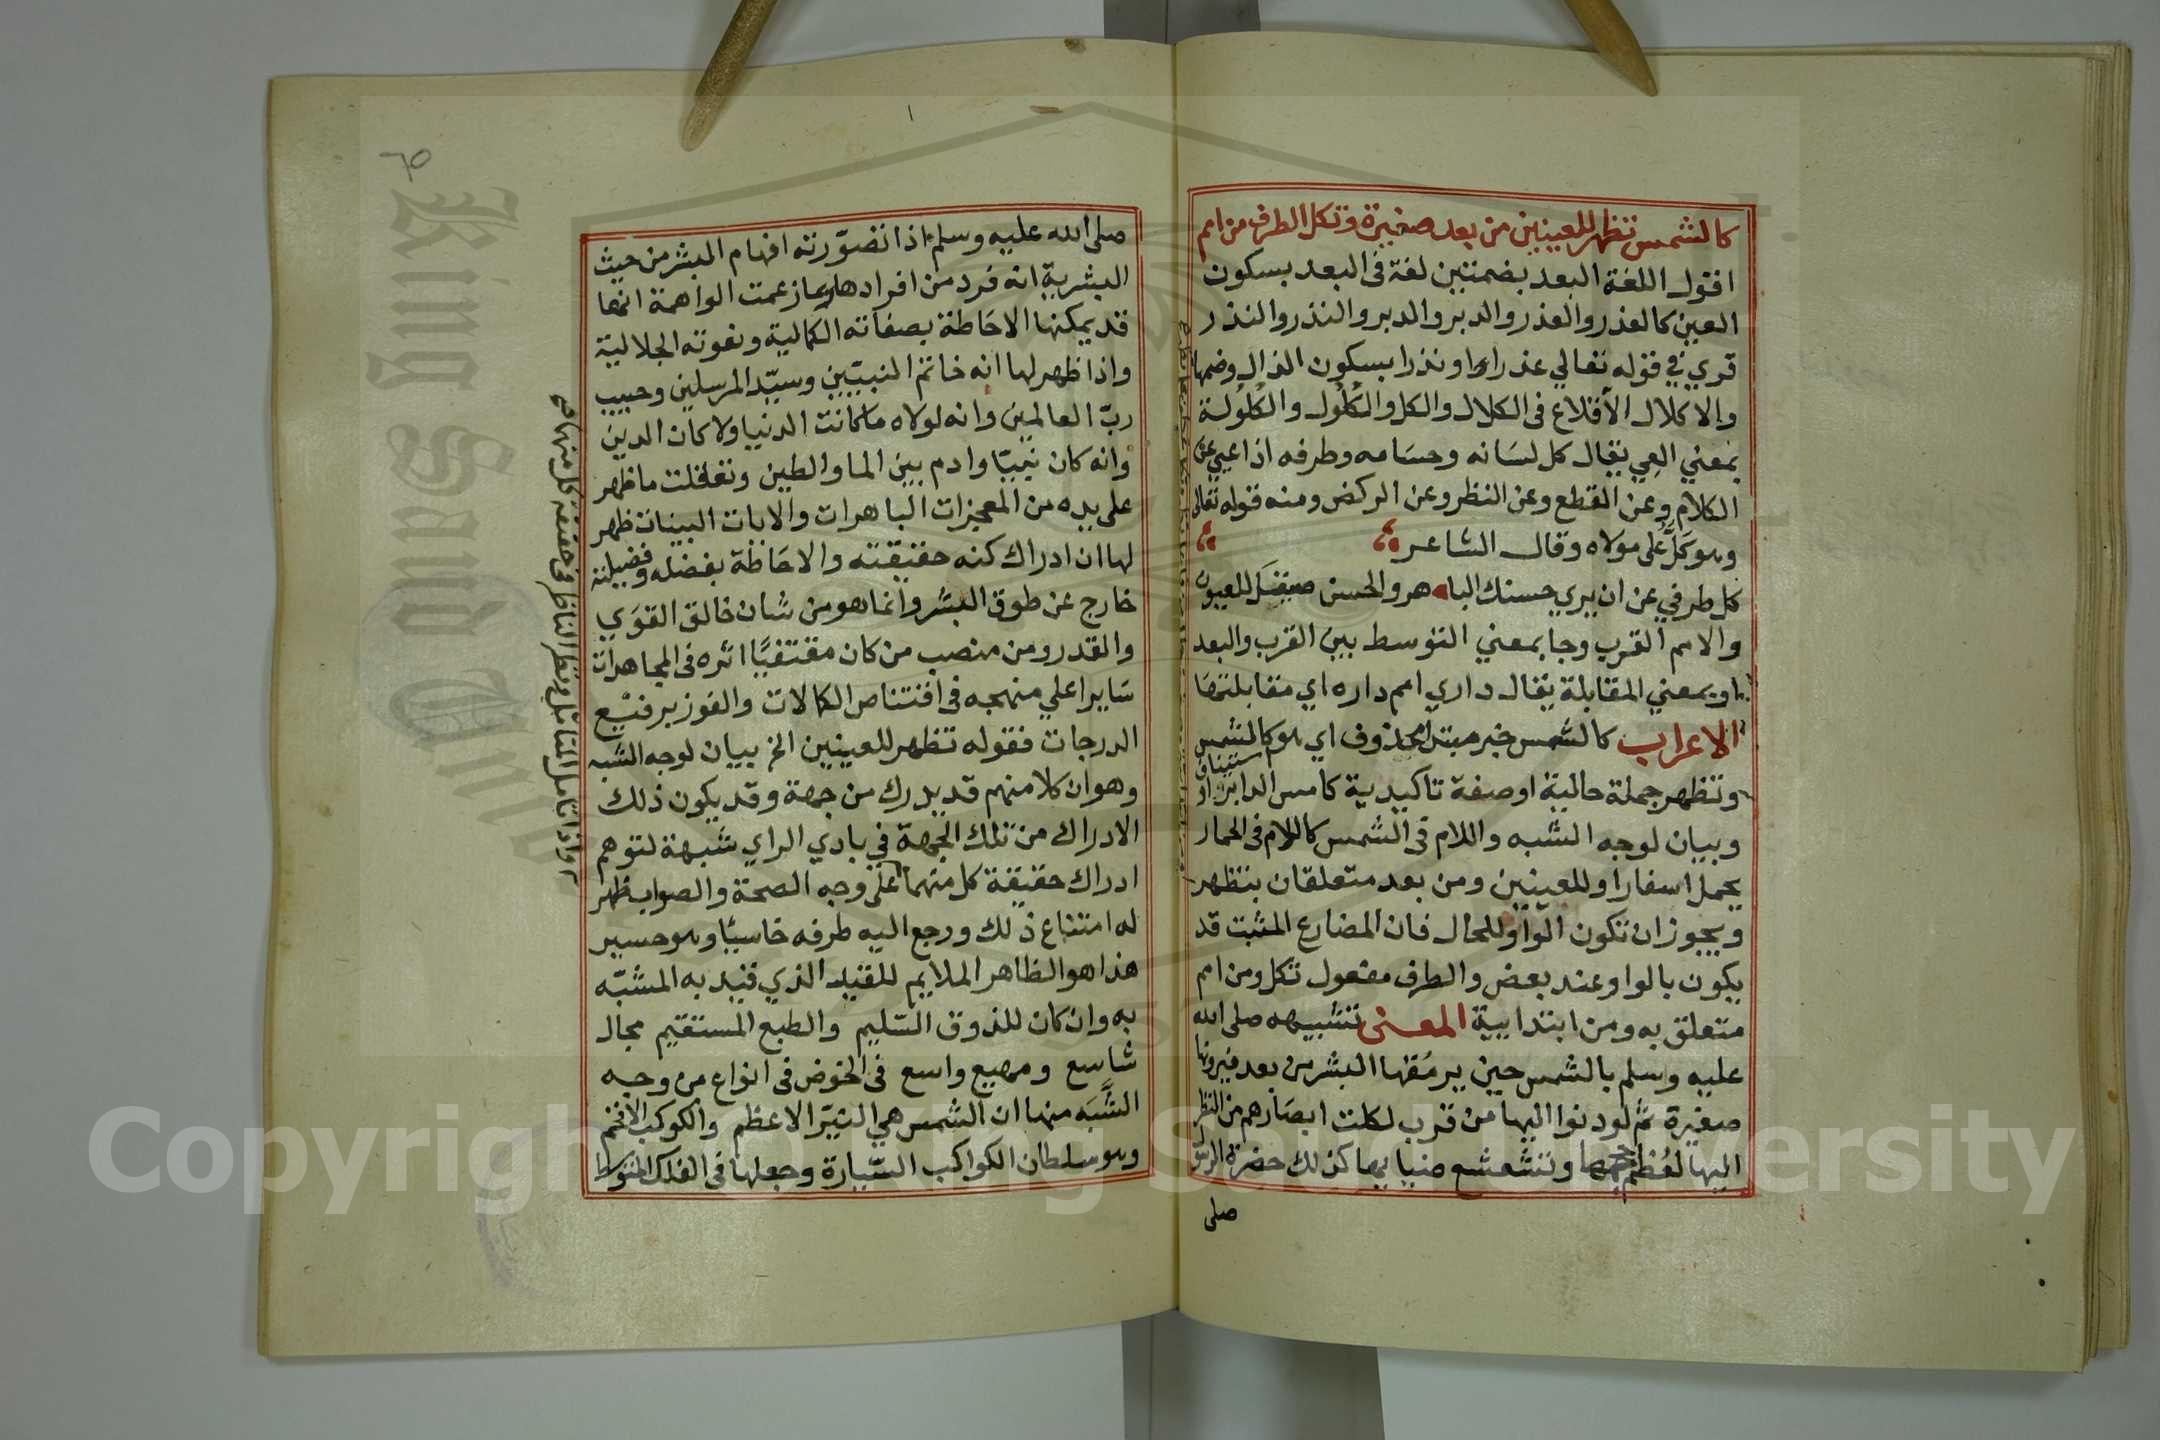 كالشمس تظهر للعينين من بعد صغيرة وتكل الطرف من امم
اقول اللغة البعد بضمتين لغة فى البعد بسكون
العين كالعذر والعذر والدبر والدبر والنذر والنذر
قري في قوله تعالي عذرا او نذرا بسكون الذال وضمها
والاكلال الأقلاع فى الكلال والكل والكُلُول والكُلُولة
بمعني العي يقال كل لسَانه وحسَامه وطرفه اذا عيي عن
الكلام وعن القطع وعن النظر وعن الركض ومنه قوله تعالى
وهو كَلٌّ على مولاه وقال الشاعر
كل طرفي عن ان يري حسنك الباهر والحسن صيقل للعيون
والامم القرب وجا بمعني التوسط بين القرب والبعد
وبمعني المقابلة يقال داري امم داره اي مقابلتها
الاعراب كالشمس خبر مبتدا محذوف اي هو كالشمس
وتظهر جملة حالية او صفة تاكيدية كامس الدابر او استيناف
وبيان لوجه الشبه واللام فى الشمس كاللام فى الحمار
يحمل اسفارا وللعينين ومن بعد متعلقان بتظهر
ويجوز ان تكون الواو للحال فان المضارع المثبت قد
يكون بالواو عند بعض والطرف مفعول تكل ومن امم
متعلق به ومن ابتدايية المعنى تشبيهه صلى الله
عليه وسلم بالشمس حين يرمُقها البشر من بعد فيرونها
صغيرة ثم لو دنوا اليها من قرب لكلت ابصَارهم من النظر
اليها لعُظم حجمها وتشعشع ضيايها كذلك حضرة الرسول
صلى
٦٥
صلى الله عليه وسلم اذا تصوّرته افهام البشر من حيث
البشرية انه فرد من افرادها زعمت الواهمة انها
قد يمكنها الاحَاطة بصفاته الكمالية ونعوته الجلالية
واذا ظهر لها انه خاتم النبيّين وسيّد المرسلين وحبيب
ربّ العالمين وانه لولاه ما كانت الدنيا ولا كان الدين
وانه كان نبيّا وادم بين الما والطين وتعقلت ما ظهر
على يده من المعجزات الباهرات والايات البينات ظهر
لها ان ادراك كنه حقيقته والاحَاطة بفضله وفضيلته
خارج عن طوق البشر وانما هو من شان خالق القوَي
والقدر ومن منصب من كان مقتفيًا اثره فى المجاهدات
سَايرا علي منهجه فى اقتناص الكالات والفوز برفيع
الدرجات فقوله تظهر للعينين الخ بيان لوجه الشبه
وهو ان كلا منهم قد يدرك من جهة وقد يكون ذلك
الادراك من تلك الجهة في بادي الراي شبهة لتوهم
ادراك حقيقة كل منهما علي وجه الصحة والصواب ظهر
له امتناع ذلك ورجع اليه طرفه خاسيًا وهو حسير
هذا هو الظاهر الملايم للقيد الذي قيد به المشبّه
به وان كان للذوق السّليم والطبع المستقيم مجال
شاسع ومهيع واسع فى الخوض فى انواع من وجه
الشَّبَه منها ان الشمس هي النيّر الاعظم والكوكب الافخم
وهو سلطان الكواكب السّيارة وجعلها فى الفلك المتوسط
واذا تامل المتامل ونظر الناظر فى حقيقة كل منهما